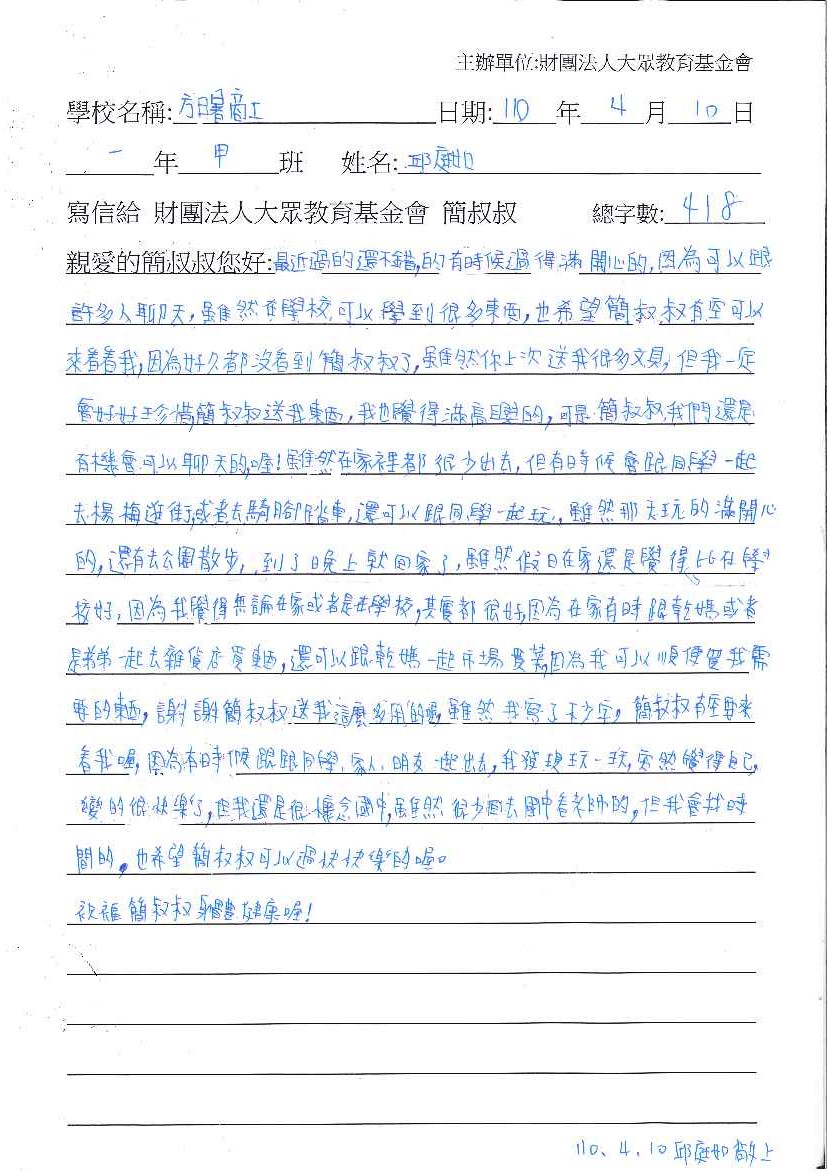 主辦單位:財團法人大眾教育基金會
學校名稱: 方曙商工 日期: 110 年 4 月 10 日
一 年 甲 班 姓名: 邱庭如
寫信給 財團法人大眾教育基金會 簡叔叔 總字數: 418
親愛的簡叔叔您好:最近過的還不錯,的有時候過得滿開心的,因為可以跟
許多人聊天,雖然在學校可以學到很多東西,也希望簡叔叔有空可以
來看看我,因為好久都沒看到簡叔叔了,雖然你上次送我很多文具,但我一定
會好好珍惜簡叔叔送我東西,我也覺得滿高興的,可是簡叔叔我們還是
有機會可以聊天的喔!雖然在家裡都很少出去,但有時候會跟同學一起
去楊梅逛街,或者去騎腳踏車,還可以跟同學一起玩,雖然那天玩的滿開心
的,還有去公園散步,到了晚上就回家了,雖然假日在家還是覺得比在學
校好,因為我覺得無論在家或者是在學校,其實都很好,因為在家有時跟乾媽或者
是弟弟一起去雜貨店買東西,還可以跟乾媽一起市場買菜因為我可以順便買我需
要的東西,謝謝簡叔叔送我這麼多用的喔,雖然我寫了不少字,簡叔叔有空要來
看我喔,因為有時候跟同學、家人、朋友一起出去,我發現玩一玩,突然覺得自己
變的很快樂了,但我還是很懷念國中,雖然很少回去國中看老師的,但我會找時
間的,也希望簡叔叔可以過快快樂的喔。
祝福簡叔叔身體健康喔!
110、4.10邱庭如敬上